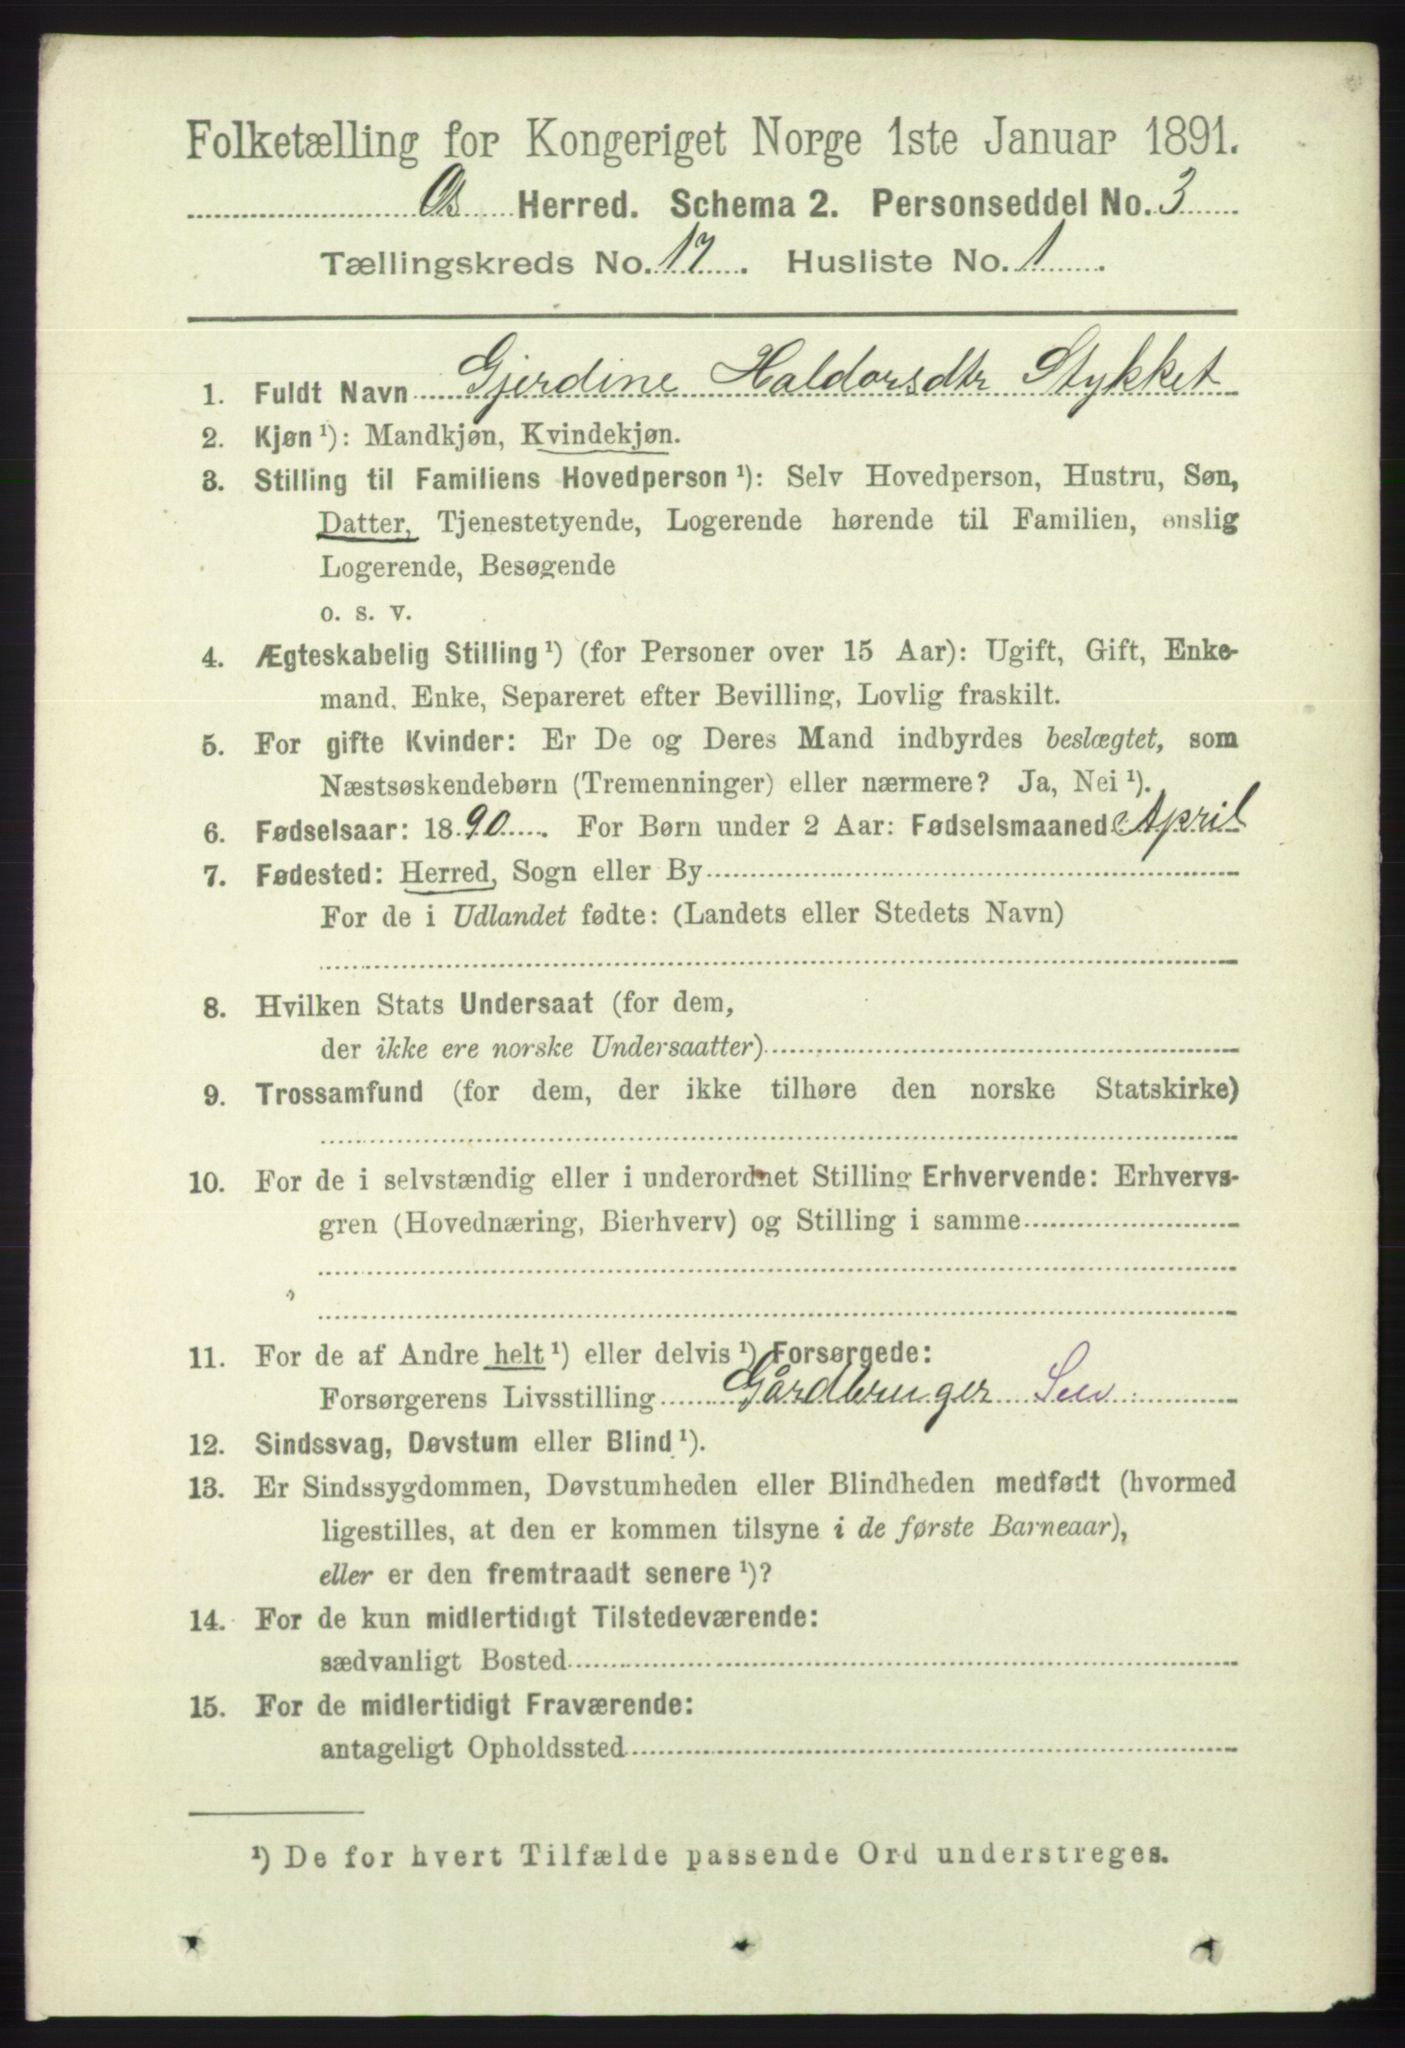 Folketælling for Kongeriget Norge 1ste Januar 1891.
Os Herred. Schema 2. Personseddel No. 3
Tællingskreds No. 17. Husliste No. 1.
1. Fuldt Navn Gjerdine Haldorsdtr Stykket
2. Kjøn ¹): Mandkjøn, Kvindekjøn.
3. Stilling til Familiens Hovedperson ¹): Selv Hovedperson, Hustru, Søn,
Datter, Tjenestetyende, Logerende hørende til Familien, enslig
Logerende, Besøgende
o. s. v.
4. Ægteskabelig Stilling ¹) (for Personer over 15 Aar): Ugift, Gift, Enke-
mand, Enke, Separeret efter Bevilling, Lovlig fraskilt.
5. For gifte Kvinder: Er De og Deres Mand indbyrdes beslægtet, som
Næstsøskendebørn (Tremenninger) eller nærmere? Ja, Nei ¹).
6. Fødselsaar: 1890. For Børn under 2 Aar: Fødselsmaaned: April
7. Fødested: Herred, Sogn eller By
For de i Udlandet fødte: (Landets eller Stedets Navn)
8. Hvilken Stats Undersaat (for dem,
der ikke ere norske Undersaatter)
9. Trossamfund (for dem, der ikke tilhøre den norske Statskirke)
10. For de i selvstændig eller i underordnet Stilling Erhvervende: Erhvervs-
gren (Hovednæring, Bierhverv) og Stilling i samme
11. For de af Andre helt ¹) eller delvis ¹) Forsørgede:
Forsørgerens Livsstilling Gårdbruger
12. Sindssvag, Døvstum eller Blind ¹).
13. Er Sindssygdommen, Døvstumheden eller Blindheden medfødt (hvormed
ligestilles, at den er kommen tilsyne i de første Barneaar),
eller er den fremtraadt senere ¹)?
14. For de kun midlertidigt Tilstedeværende:
sædvanligt Bosted
15. For de midlertidigt Fraværende:
antageligt Opholdssted
¹) De for hvert Tilfælde passende Ord understreges.